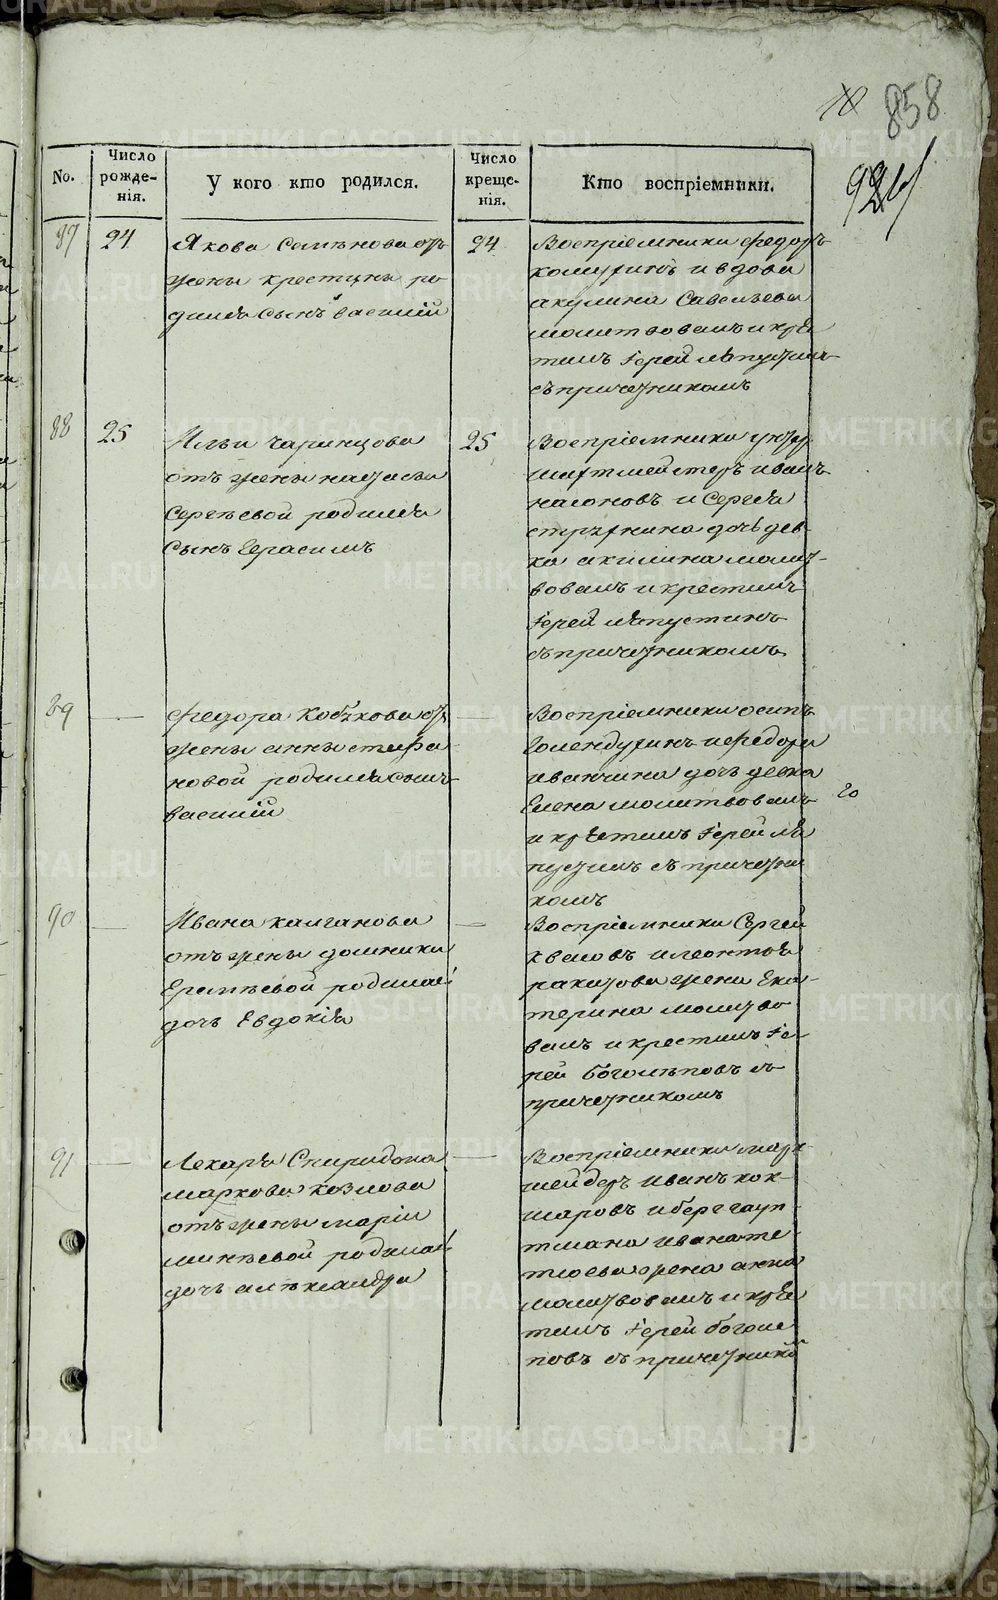 858
No.
Число рожденія.
У кого кто родился.
Число крещенія.
Кто воспріемники.
87
24
Якова Семѣнова отъ
жены крестины ро
дился сынъ василій
24
Воспріемники федоръ
и вдова
акулина Савельева
молитвовалъ и кре
тилъ Іерей лепустинъ
съ причетникомъ
88
25
Ильи Чаринцова
отъ жены настасьи
Сергѣевой родился
сынъ Герасимъ
25
Воспріемники унтер
шихтмейстеръ иванъ
насоновъ и Сергея
дочь дев
ка акилина молит
вовалъ и крестилъ
Іерей лепустинъ
съ причетникомъ
89
Федора Кобякова от
жены анны стефа
новой родился сынъ
василій
Воспріемники осипъ
Голендухинъ и федора
иванчина дочь девка
Елена молитвовалъ
и крестилъ Іерей ле
пустинъ съ причетни
комъ
20
90
Ивана калганова
отъ жены домники
Еремѣевой родилас
дочь Евдокія
Воспріемники Сергей
и леонтья
жена Ека
терина молитво
валъ и крестилъ Іе
рей боголеповъ съ
причетникомъ
91
Лекаря Спиридона
маркова козлова
отъ жены маріи
минѣевой родилас
дочь александра
Воспріемники марк
шейдеръ иванъ кок
шаровъ и берггауп
тмана ивана те
тюева жена анна
молитвовалъ и кре
тилъ Іерей боголе
повъ съ причетнико
METRIKI.GASO-URAL.RU